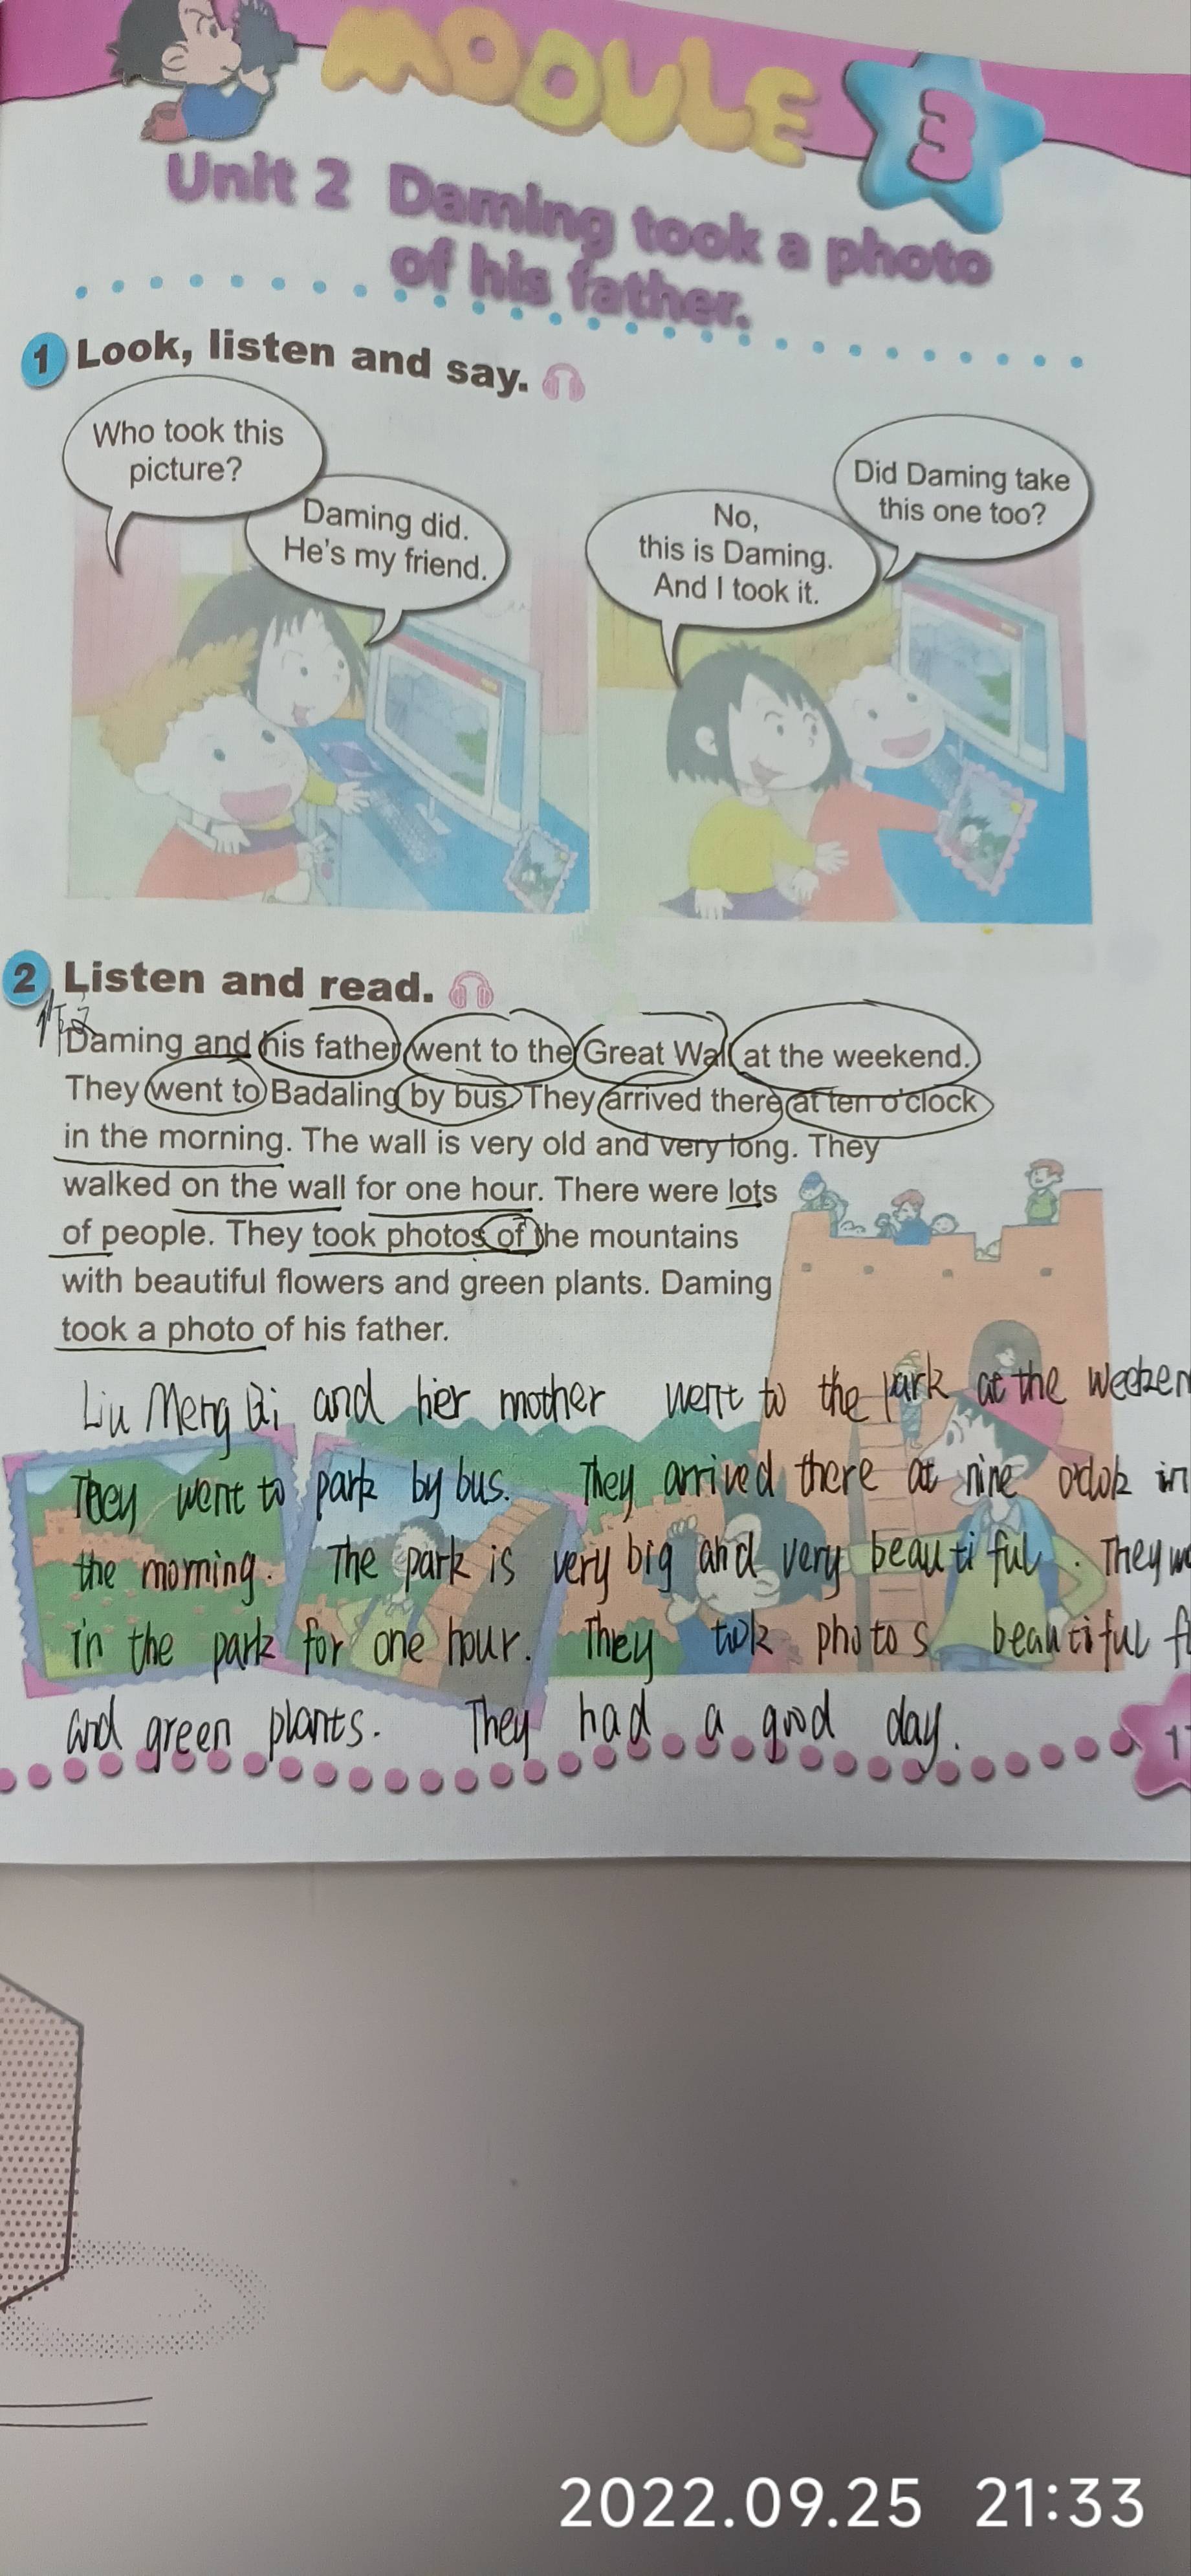 MODULE 3
Unit 2 Daming took a photo
of his father.
1 Look, listen and say.
Who took this
picture?
Daming did.
He's my friend.
Did Daming take
this one too?
No,
this is Daming.
And I took it.
2 Listen and read.
Daming and his father went to the Great Wall at the weekend.
They went to Badaling by bus. They arrived there at ten o'clock
in the morning. The wall is very old and very long. They
walked on the wall for one hour. There were lots
of people. They took photos of the mountains
with beautiful flowers and green plants. Daming
took a photo of his father.
Liu Meng Qi and her mother went to the park at the
They went to park by bus. They arrived there at nine in
the morning. The park is very big and very beautiful. They
in the park for one hour. They took photos beautiful
and green plants. They had a good day.
2022.09.25 21:33